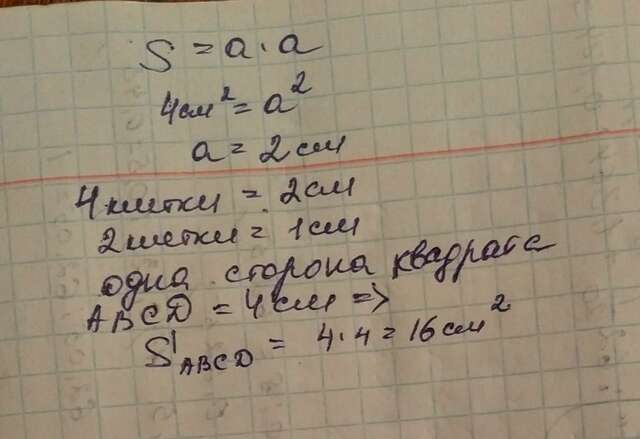 S = a · a
4 см² = a²
a = 2 см
4 клетки = 2 см
2 клетки = 1 см
одна сторона квадрата
ABCD = 4 см =>
S ABCD = 4 · 4 = 16 см²